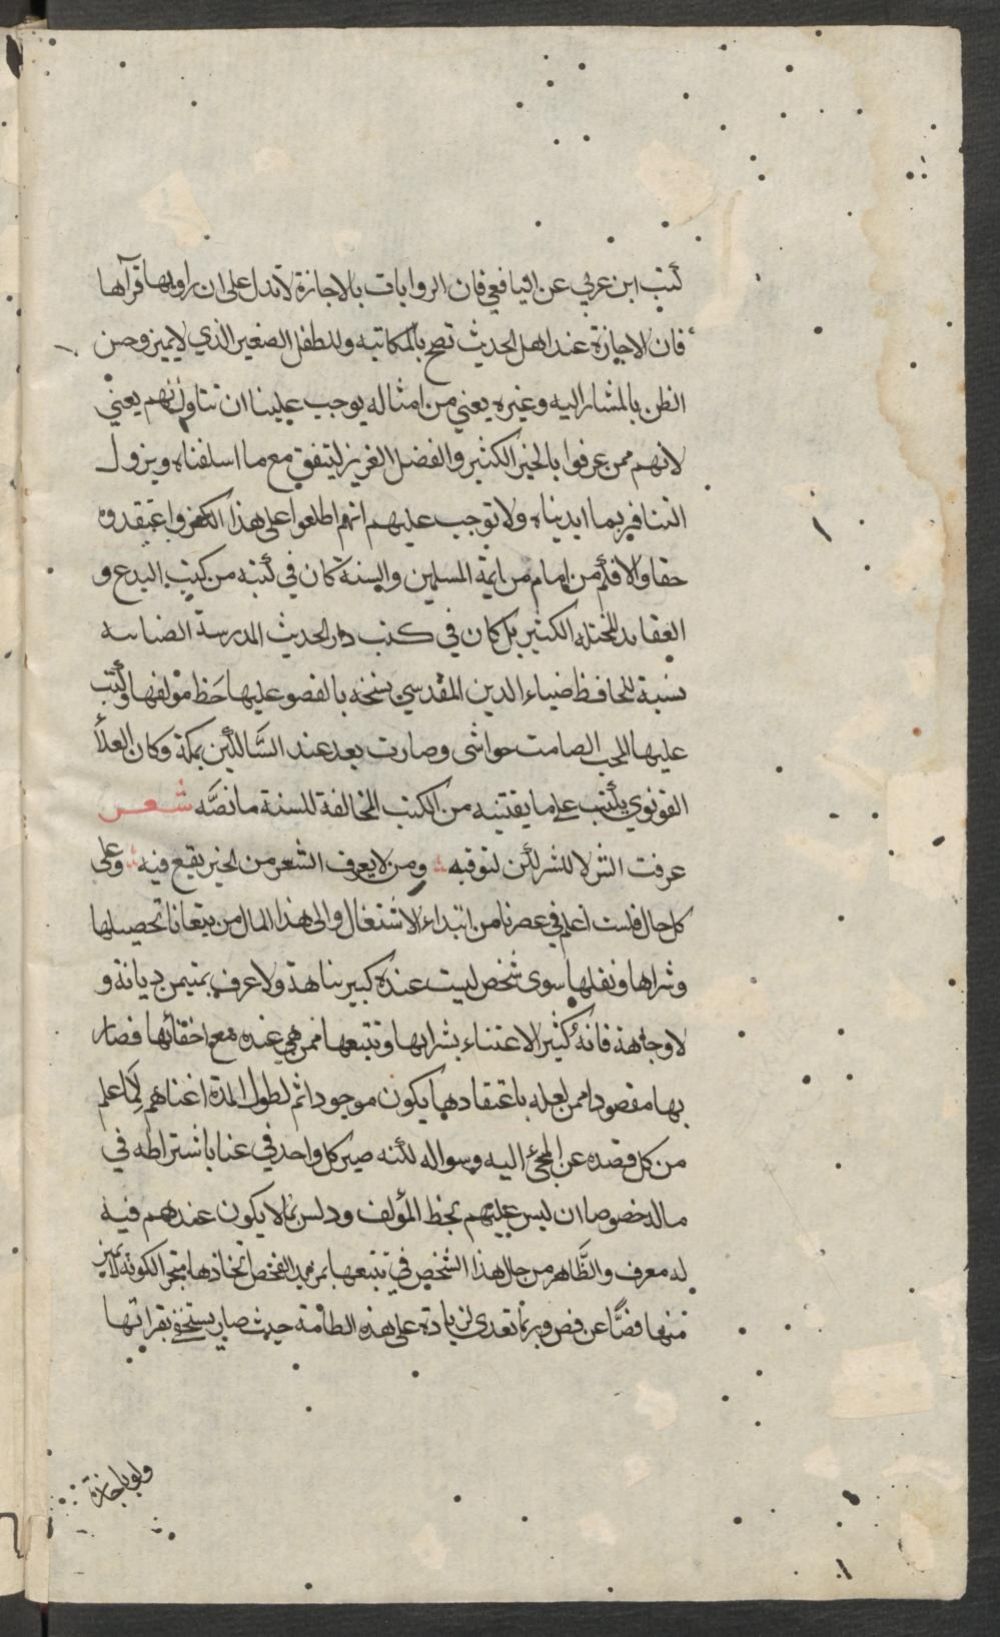 كتب ابن عربي عن اليافعي فان الروايات بالاجازة لا تدل على ان راويها قرأها
فان الاجازة عند اهل الحديث تصح بالمكاتبه وللطفل الصغير الذي لا يميز وحسن
الظن بالمشار اليه وغيره يعني من امثاله يوجب علينا ان نتاول لهم يعني
لانهم ممن عرفوا بالخير الكثير والفضل الغزير ليتفق مع ما اسلفناه ويزول
التنافر بما ابديناه ولا توجب عليهم انهم اطلعوا على هذا الكفر واعتقدوه
حقا والا فكم من امام من ايمة المسلمين والسنة كان في كتبه من كتب البدع و
العقايد المختله الكثير بل كان في كتب دار الحديث المدرسة الضيايية
نسبة للحافظ ضياء الدين المقدسي نسخه بالفصوص عليها خط مؤلفها وكتب
عليها المحب الصامت حواشي وصارت بعد عند بمكة وكان العلاء
القونوي يكتب على ما يقتنيه من الكتب المخالفة للسنة ما نصَّه شعر
عرفت الشر لا للشر لكن لتوقيه ومن لا يعرف الشر من الخير يقع فيه وعلى
كل حال فلست اعلم في عصرنا من ابتداء الاشتغال والى هذا المال من يتعانا تحصيلها
وشراها ونقلها سوى شخص ليست عنده كبير نباهة ولا عرف بمتين ديانة و
لا وجاهة فانه كثير الاعتناء بشرايها وتتبعها ممن هي عنده مع اخفائها فصار
بها مقصودا ممن لعله باعتقادها يكون موجودا ثم لطول المدة اغناهم لما علم
من كل قصده عن المجئ اليه وسواله لكنه صير كل واحد في عنا باشتراطه في
ماله خصوصا ان ليس عليهم بخط المؤلف ودلس بما لا يكون عندهم فيه
له معرف والظاهر من حال هذا الشخص في تتبعها اتخاذها متجرا لكونه لا يميز
منها فصًّا عن فص وربما تعدى لزيادة على هذه الطامة حيث صار يقراتها
ولو باجازة